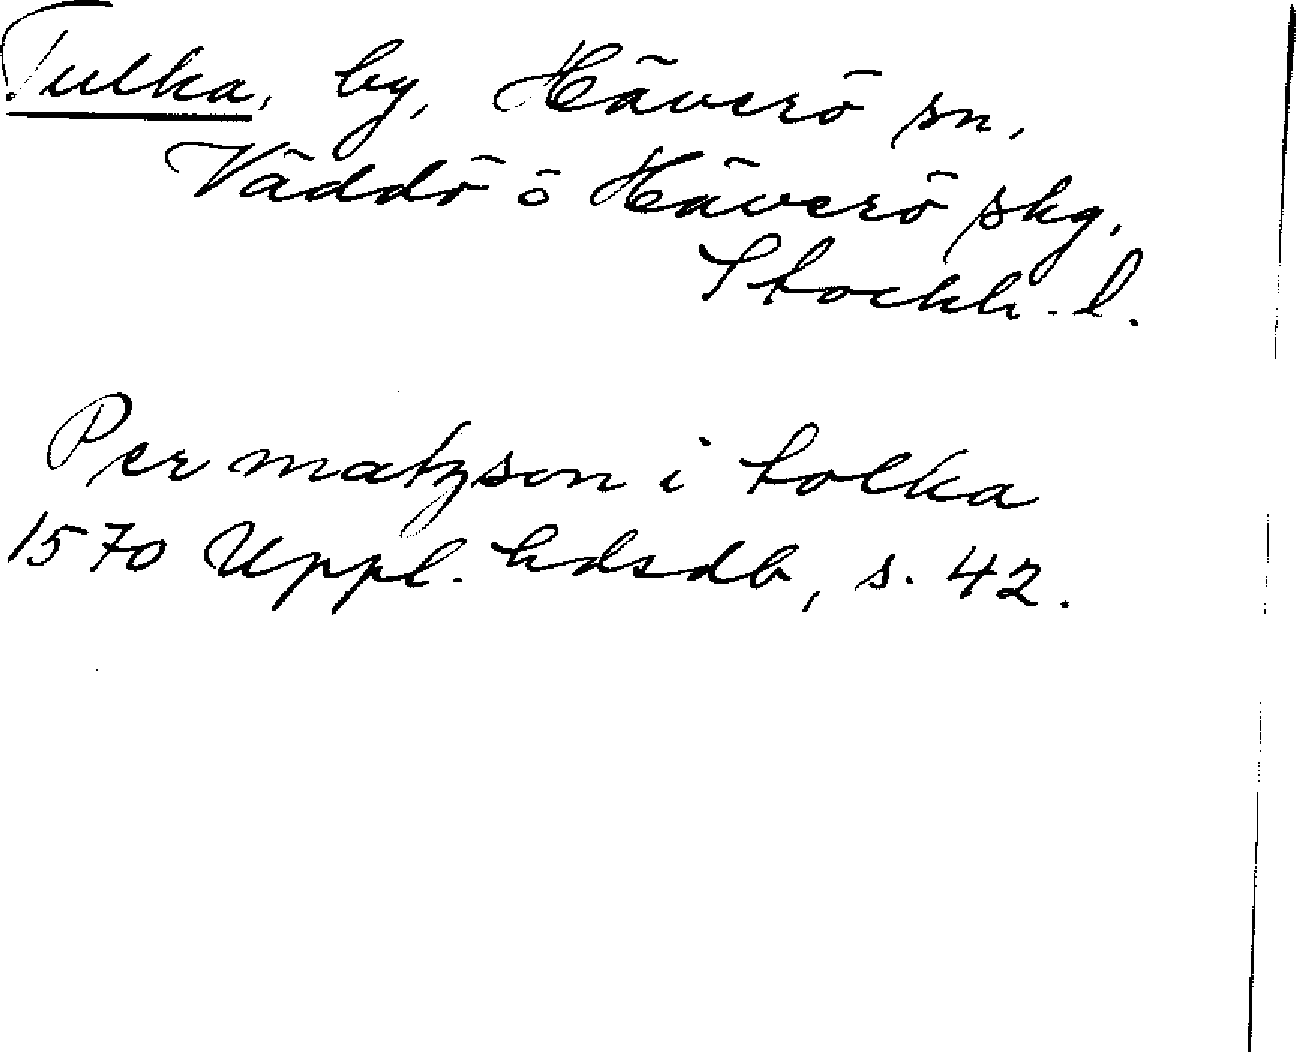 Tulka, by, Häverö sn,
Väddö o Häverö skg,
Stockh. l.
Per matzson i tolka
1570 Uppl. hdsdb, s. 42.